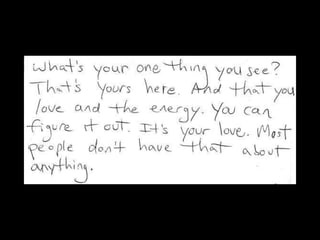 What's your one thing you see?
That's yours here. And that you
love and the energy. You can
figure it out. It's your love. Most
people don't have that about
anything.